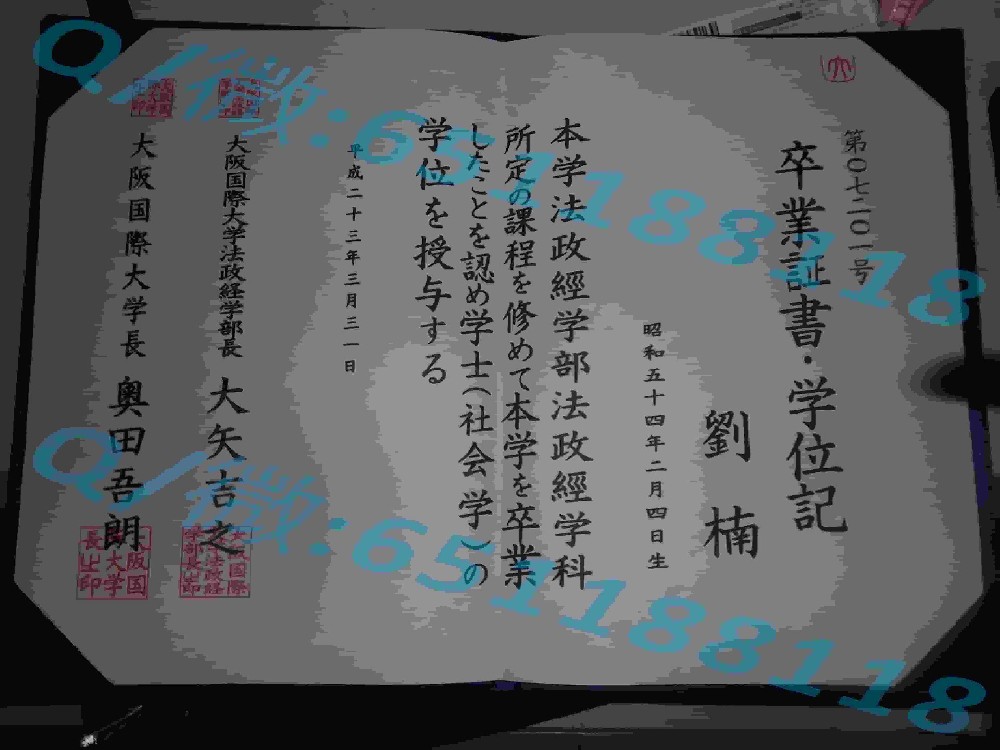 第〇七二〇一号
卒業証書・学位記
劉楠
昭和五十四年二月四日生
本学法政經学部法政經学科
所定の課程を修めて本学を卒業
したことを認め学士(社会学)の
学位を授与する
平成二十三年三月三一日
大阪国際大学法政経学部長 大矢吉之
大阪国際大学長 奥田吾朗
Q/微:65118811８
Q/微:651188118